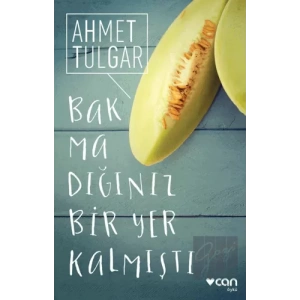 AHMET
TULGAR
BAK
MA
DIĞINIZ
BİR YER
KALMIŞTI
can
öykü